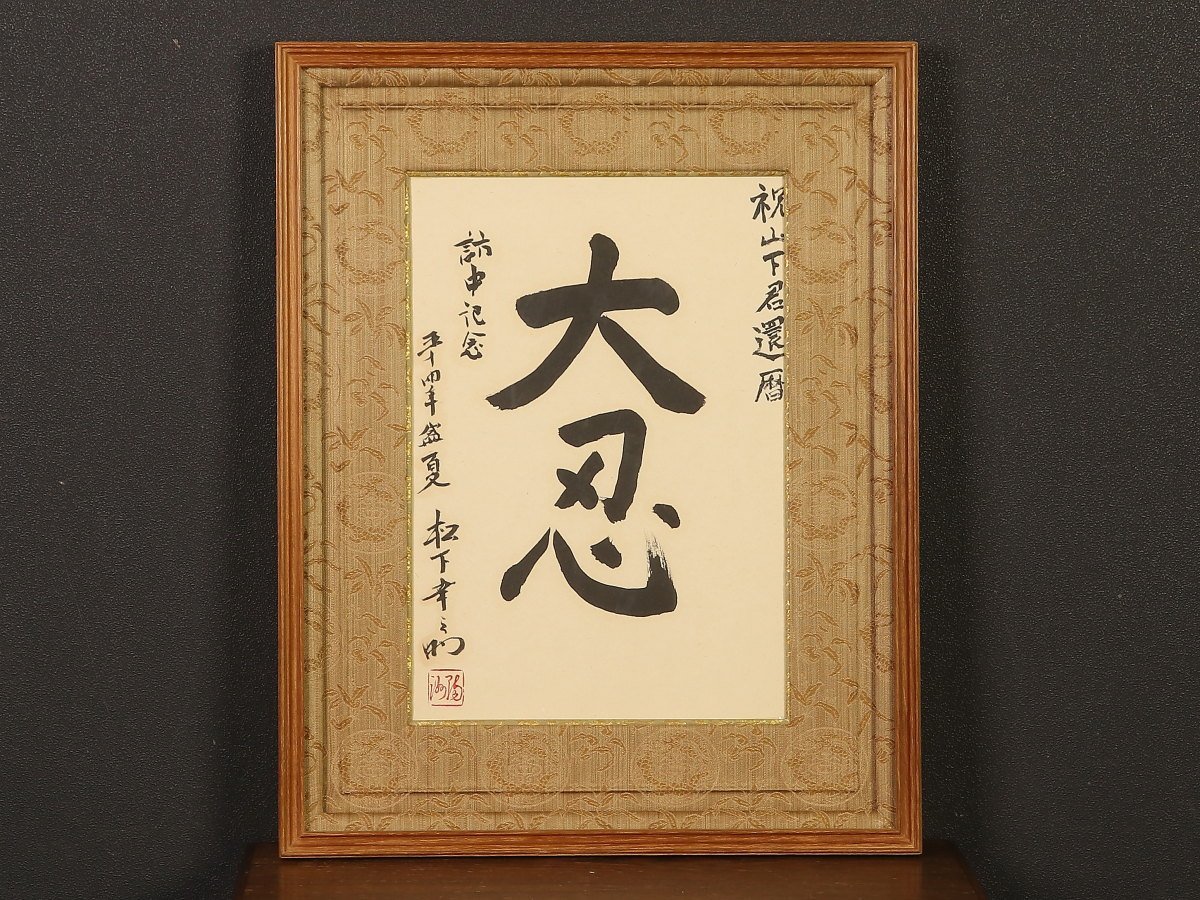 祝山下君還暦
大忍
訪中記念
五十四年盛夏 松下幸之助
陽洲